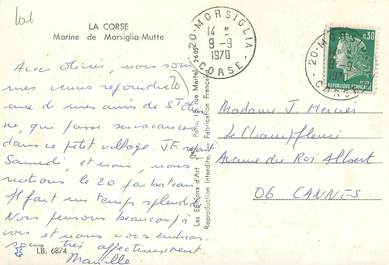 LA CORSE
Marine de Morsiglia-Mutte
Avec Olivier, nous sommes venus rejoindre
une de mes amies de St Étienne, qui passe ses vacances
dans ce petit village. JF repart
Samedi, et nous, nous
rentrons le 20 par bateau
Il fait un temps splendide
Nous pensons beaucoup à
vous et nous vous embrassons
très affectueusement
LB. 6874
Les Editions d'Art
Reproduction interdite. Fabrication Française
20-MORSIGLIA
14 H
9-9
1970
CORSE
20-MO
CORSE
0,30
REPUBLIQUE FRANÇAISE
Madame J.
Le Champfleuri
Avenue du Roi Albert
06 CANNES